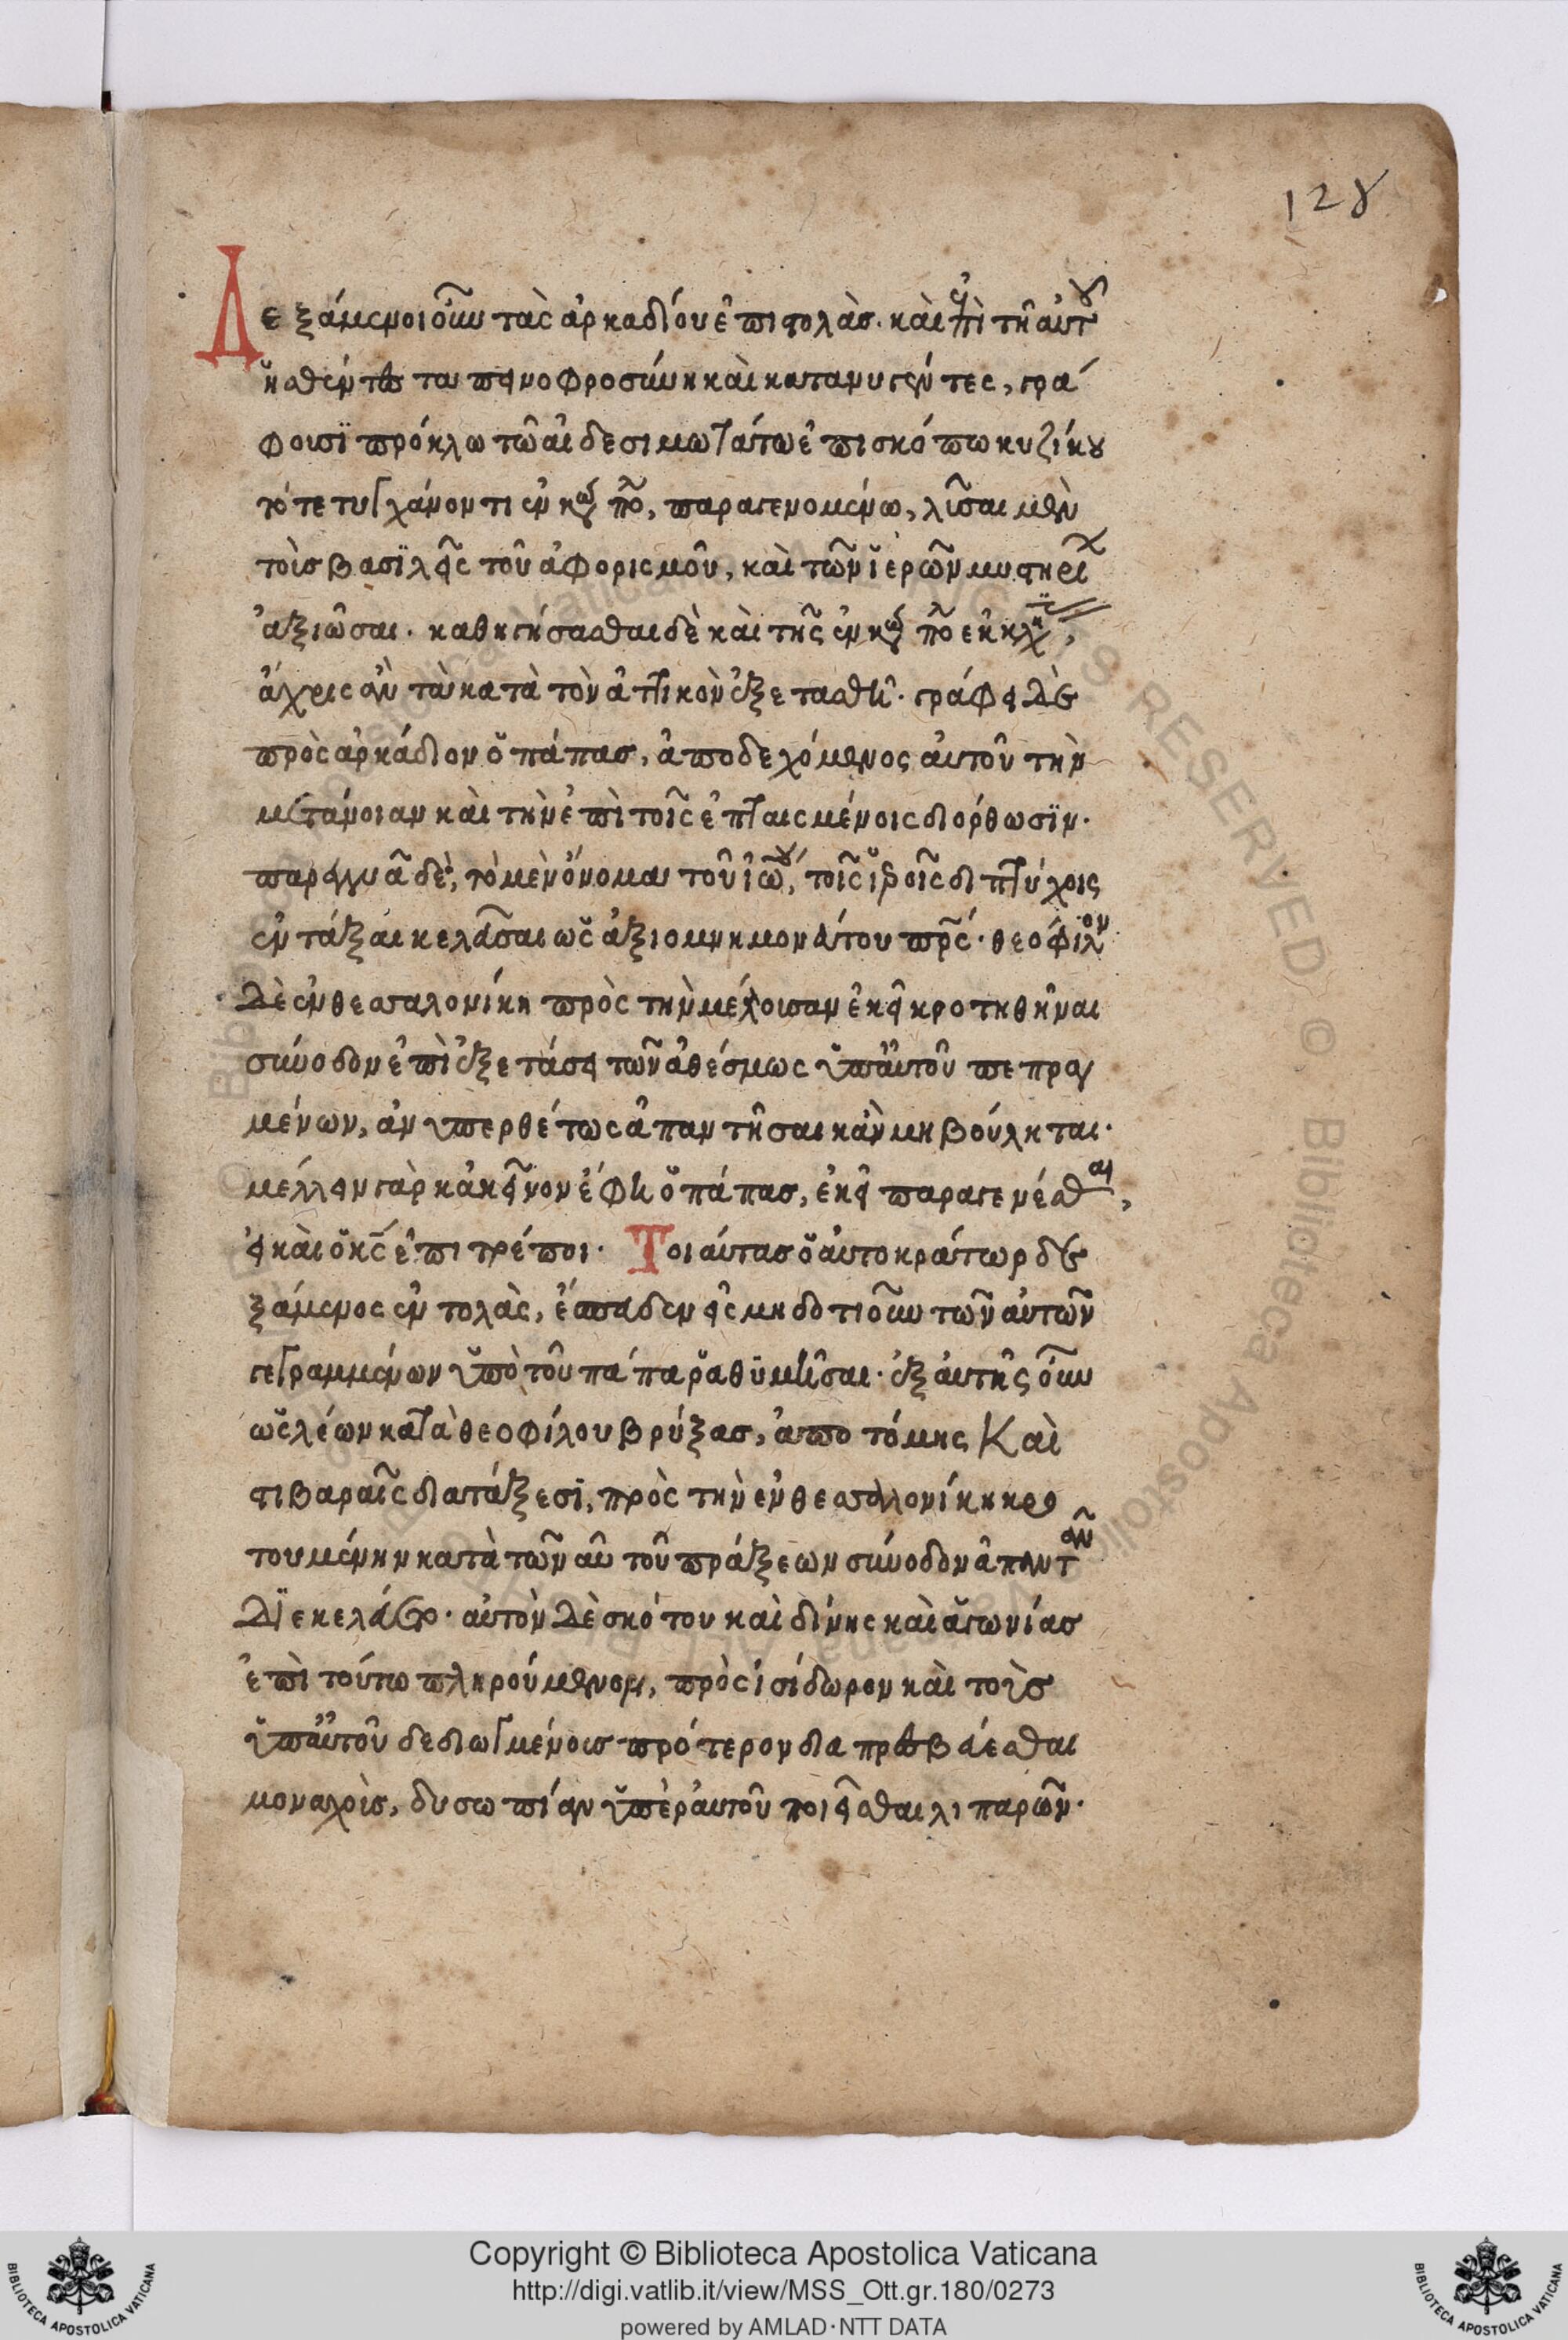 128
Δεξάμενοι οὖν τὰς ἀρκαδίου ἐπιστολὰσ. καὶ ἐπὶ τῆ αὐτοῦ
ἡσθέντες ταπεινοφροσύνη καὶ κατανυγέντες, γρά
φουσϊ πρόκλω τῶ αἰδεσιμωτάτω ἐπισκόπω κυζίκου
τότε τυγχάνοντι ἐν κων πό, παραγενομένω, λῦσαι μὲν
τοὺσ βασϊλεῖς τοῦ ἀφορισμοῦ, καὶ τῶν ἱερῶν μυστηρί
ἀξιῶσαι. καθηγήσασθαι δὲ καὶ τῆς ἐν κων πό ἐκκλη,
ἄχρις ἂν τὰ κατὰ τὸν ἀττικὸν ἐξετασθῆ. γράφει δὲ
πρὸς ἀρκάδιον ὁ πάπασ, ἀποδεχόμενος αὐτοῦ τὴν
μετάνοιαν καὶ τὴν ἐπὶ τοῖς ἐπταισμένοις διόρθωσϊν.
παρεγγυᾶ δὲ, τὸ μὲν ὄνομα τοῦ ἰωού, τοῖς ἱεροῖς διπτύχοις
ἐντάξαι κελεῦσαι ὡς ἀξιομνημονεύτου πρς. θεόφιλον
δὲ ἐν θεσσαλονίκη πρὸς τὴν μέλλουσαν ἐκεῖ κροτηθῆναι
σύνοδον ἐπὶ ἐξετάσει τῶν ἀθέσμως ὑπ' αὐτοῦ πεπραγ
μένων, ἀνυπερθέτως ἀπαντῆσαι κἂν μὴ βούληται.
μέλλειν γὰρ κἀκεῖνον ἔφη ὁ πάπασ, ἐκεῖ παραγενέσθαι,
εἰ καὶ ὁ κς ἐπιτρέποι. Τοιαύτασ ὁ αὐτοκράτωρ δε
ξάμενος ἐντολὰς, ἔσπευδεν εἰς μηδοτιοῦν τῶν αὐτῶν
γεγραμμένων ὑπὸ τοῦ πάπα ῥαθϋμῆσαι. ἐξ αὐτῆς οὖν
ὡς λέων κατὰ θεοφίλου βρύξασ, ἀποτόμης Καὶ
στιβαραῖς διατάξεσϊ, πρὸς τὴν ἐν θεσσαλλονίκη κρο
τουμένην κατὰ τῶν αὐτοῦ πράξεων σύνοδον ἀπαντᾶν
δϊεκελεύετο. αὐτὸν δὲ σκότου καὶ δίνης καὶ ἀγωνίασ
ἐπὶ τούτω πληρούμενον, πρὸς ἰσίδωρον καὶ τοὺσ
ὑπ' αὐτοῦ δεδιωγμένουσ πρότερον διαπρεσβεύεσθαι
μοναχοὺσ, δυσωπίαν ὑπὲρ αὐτοῦ ποιεῖσθαι λιπαρῶν.
Copyright © Biblioteca Apostolica Vaticana
http://digi.vatlib.it/view/MSS_Ott.gr.180/0273
powered by AMLAD·NTT DATA